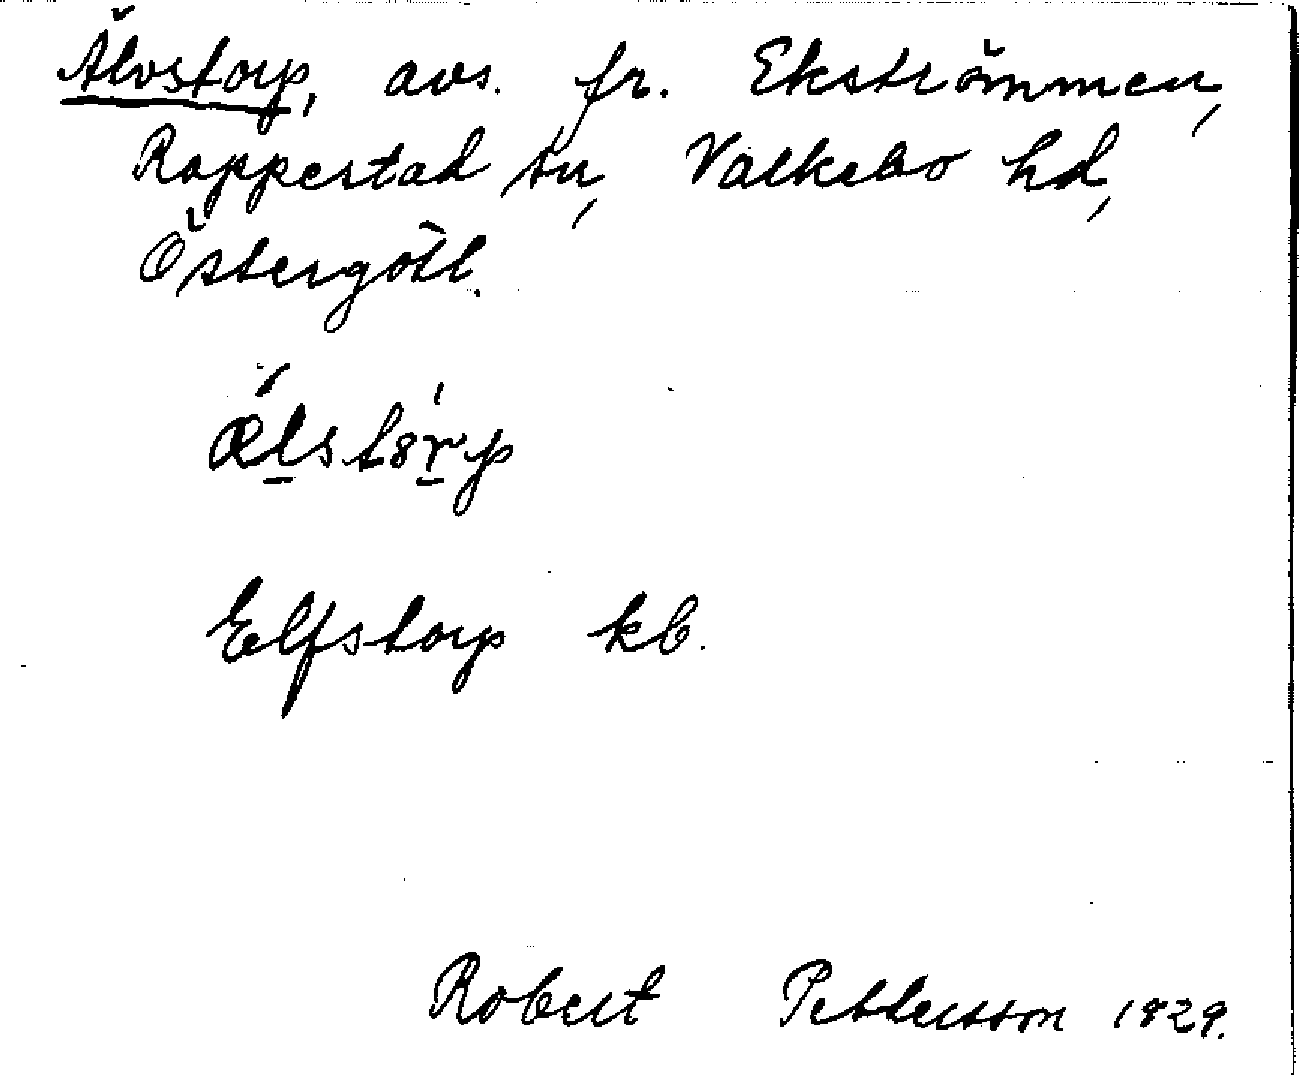 Älvstorp, avs. fr. Ekströmmen,
Rappestad sn, Valkebo hd,
Östergötl.
ǽlstó̱ṟp
Elfstorp kb.
Robert Pettersson 1929.